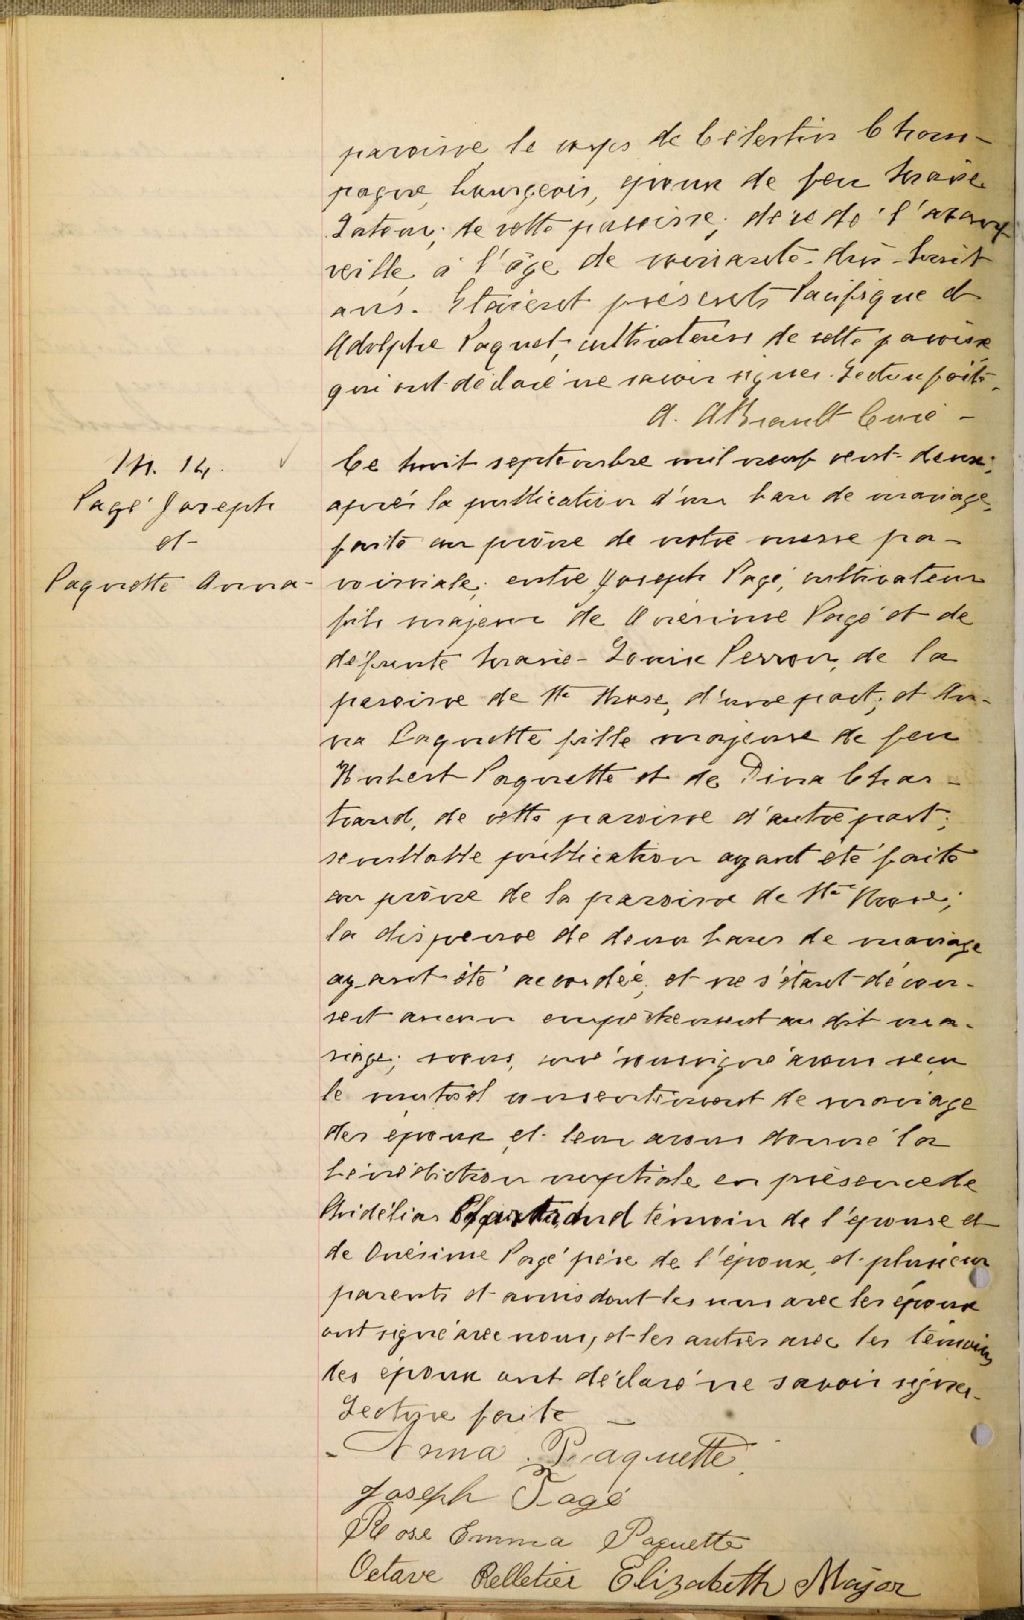 paroisse le corps de Célestin Cham-
pagne, bourgeois, époux de feu Marie
Latour, de cette paroisse, décédé l'avant
veille à l'âge de soixante-dix-huit
ans. Etaient présents Pacifique et
Adolphe Paquet, cultivateurs de cette paroisse
qui ont déclaré ne savoir signer. Lecture faite.
A. Brault Curé
M. 14.
Pagé Joseph
et
Paquette Anna
Ce huit septembre mil neuf cent-deux;
après la publication d'un ban de mariage,
faite au prône de notre messe pa-
roissiale, entre Joseph Pagé, cultivateur
fils majeur de Onésime Pagé et de
défunte Marie-Louise Perron, de la
paroisse de Ste Rose, d'une part; et An-
na Paquette fille majeure de feu
Hubert Paquette et de Dina Char-
trand, de cette paroisse d'autre part;
semblable publication ayant été faite
au prône de la paroisse de Ste Rose;
la dispense de deux bans de mariage
ayant été accordée, et ne s'étant décou-
vert aucun empêchement au dit ma-
riage; nous, curé soussigné avons reçu
le mutuel consentement de mariage
des époux et leur avons donné la
bénédiction nuptiale en présence de
Chartrand témoin de l'épouse et
de Onésime Pagé père de l'époux, et plusieurs
parents et amis dont les uns avec les époux
ont signé avec nous, et les autres avec les témoins
des époux ont déclaré ne savoir signer.
Lecture faite
Anna Paquette
Joseph Pagé
Rose Emma Paquette
Octave Pelletier Elizabeth Major